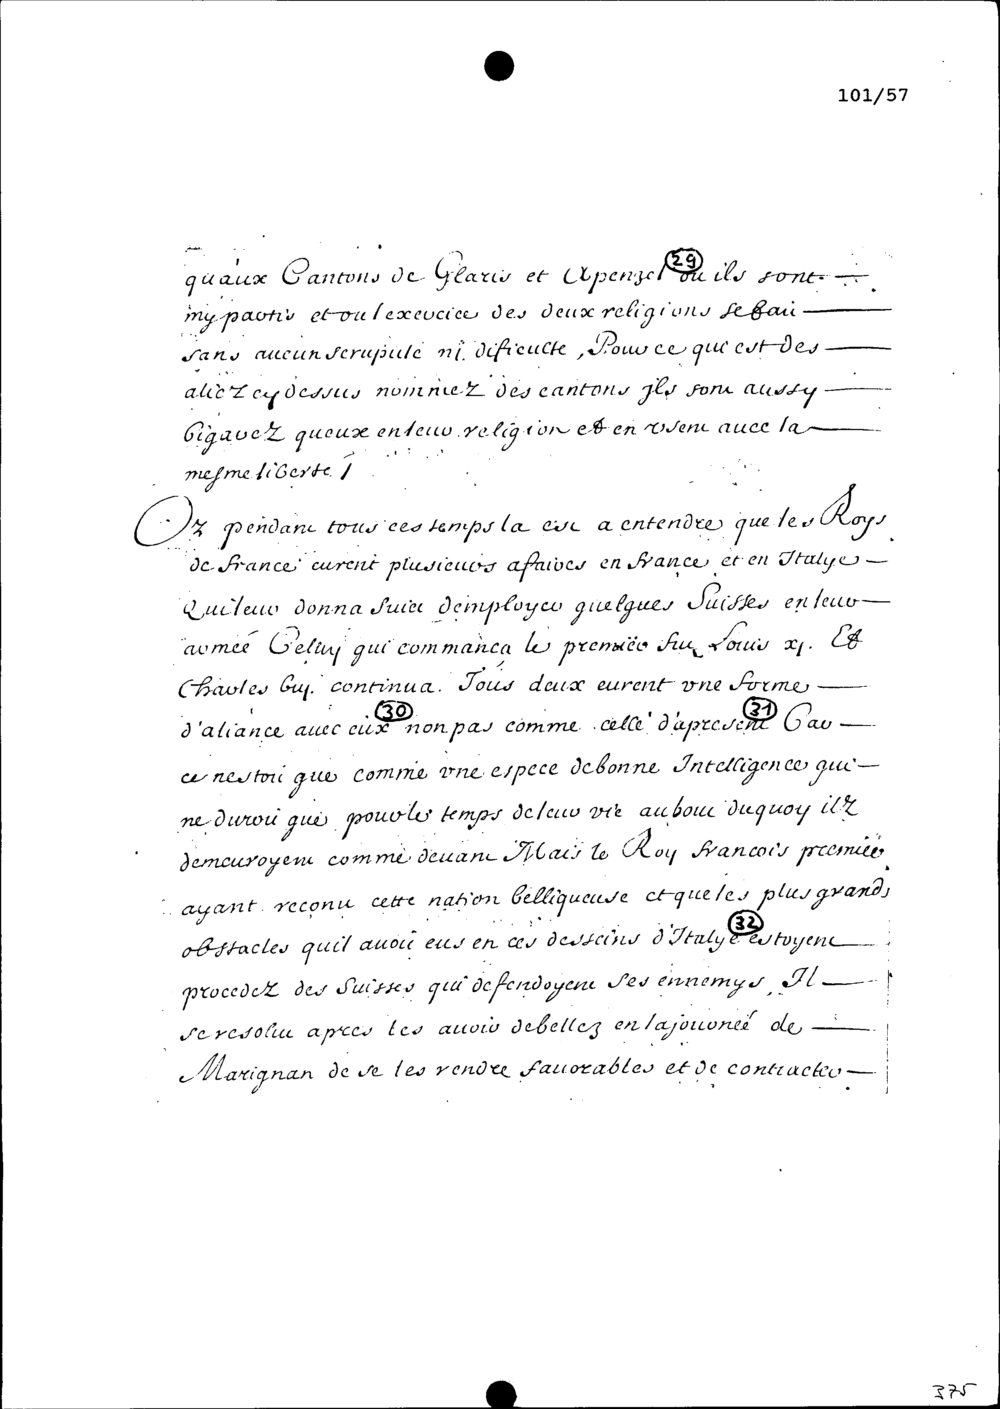 101/57
29
quaux Cantons de Glaris et Apenzel ou ils sont
my partis et ou lexercice des deux religions se fait
sans aucun scrupule ni dificulte, Pour ce qui est des
aliez cy dessus nommez des cantons jls sont aussy
bigarez queux en leur religion et en usent avec la
mesme liberte /
Or pendant tous ces temps la est a entendre que les Roys
de france eurent plusieurs afaires en france et en Italye
Qui leur donna suiet demployer quelques Suisses en leur
armeé Celuy qui commança le premier fut Louis xj. Et
Charles huj. continua. Tous deux eurent vne forme
30 31
d'aliance auec eux non pas comme celle d'apresent Car
ce nestoit que comme vne espece de bonne Intelligence qui
ne duroit que pour le temps de leur vie au bout duquoy ilz
demeuroyent comme deuant Mais le Roy francois premier
ayant reconu cette nation belliqueuse et que les plus grands
32
obstacles quil auoit eus en ces desseins d'Italye estoyent
procedez des Suisses qui defendoyent ses ennemys, Il
se resolut apres les auoir debellez en la journeé de
Marignan de se les rendre fauorables et de contracter
375